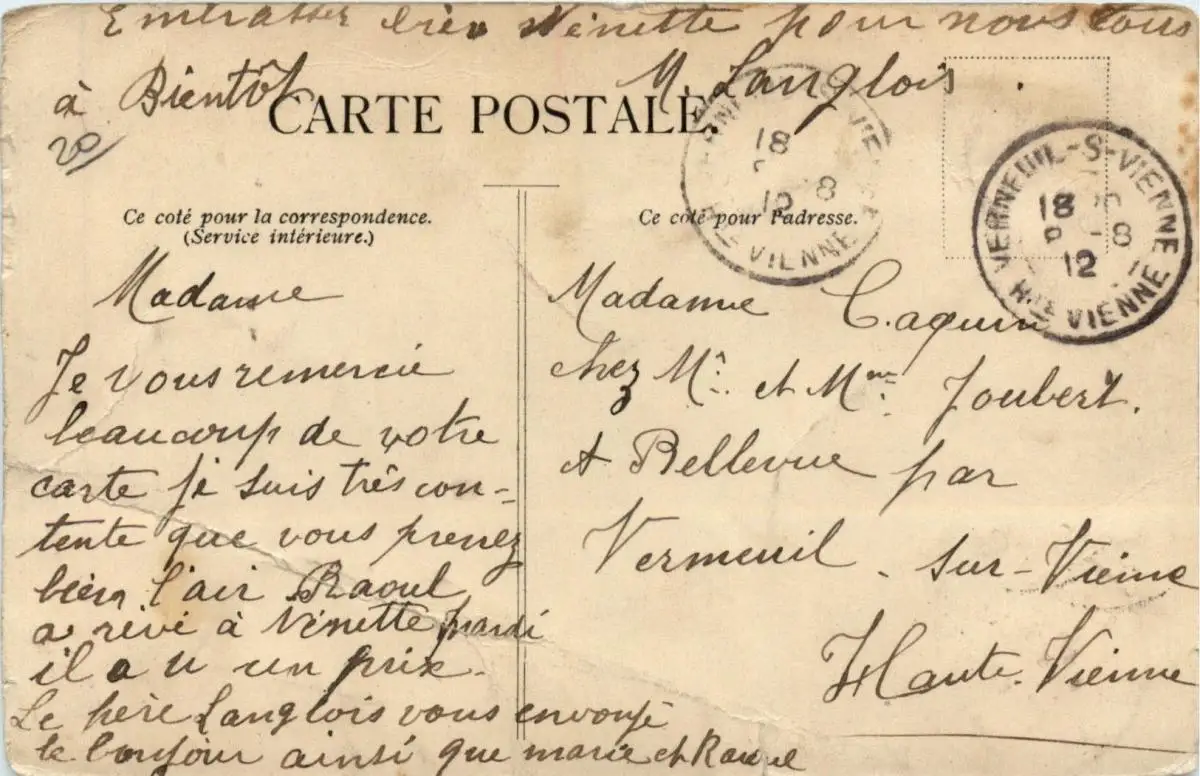 Embrasser bien Ninette pour nous tous
à Bientôt M. Langlois
20
CARTE POSTALE.
Ce coté pour la correspondence.
(Service intérieure.)
Ce coté pour l'adresse.
VERNEUIL-S-VIENNE
18
8
12
Hte VIENNE
18
8
12
Hte VIENNE
Madame
Je vous remercie
beaucoup de votre
carte je suis très con-
tente que vous prenez
bien l'air Raoul
a rêvé à Ninette mardi
il a u un prix.
Le père Langlois vous envoye
le bonjour ainsi que marie et Raoul
Madame Caquin
chez Mr. et Mme. Joubert.
A Bellevue par
Vermeuil - sur - Vienne
Haute. Vienne